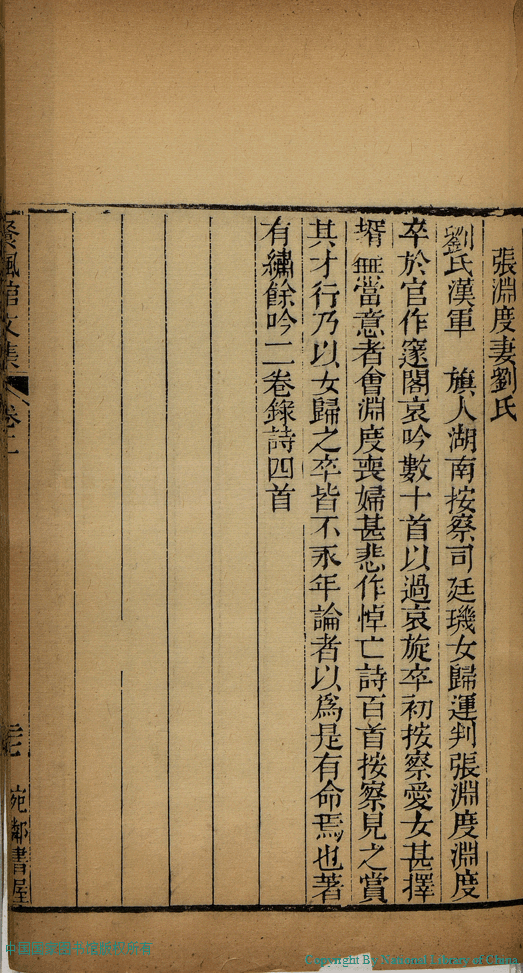 張淵度妻劉氏
劉氏漢軍　旗人湖南按察司廷璣女歸運判張淵度淵度
卒於官作邃閣哀吟數十首以過哀旋卒初按察愛女甚擇
壻無當意者會淵度喪婦甚悲作悼亡詩百首按察見之賞
其才行乃以女歸之卒皆不永年論者以爲是有命焉也著
有繡餘吟二卷錄詩四首
餐楓館文集
卷二
宛鄰書屋
Copyright By National Library of China